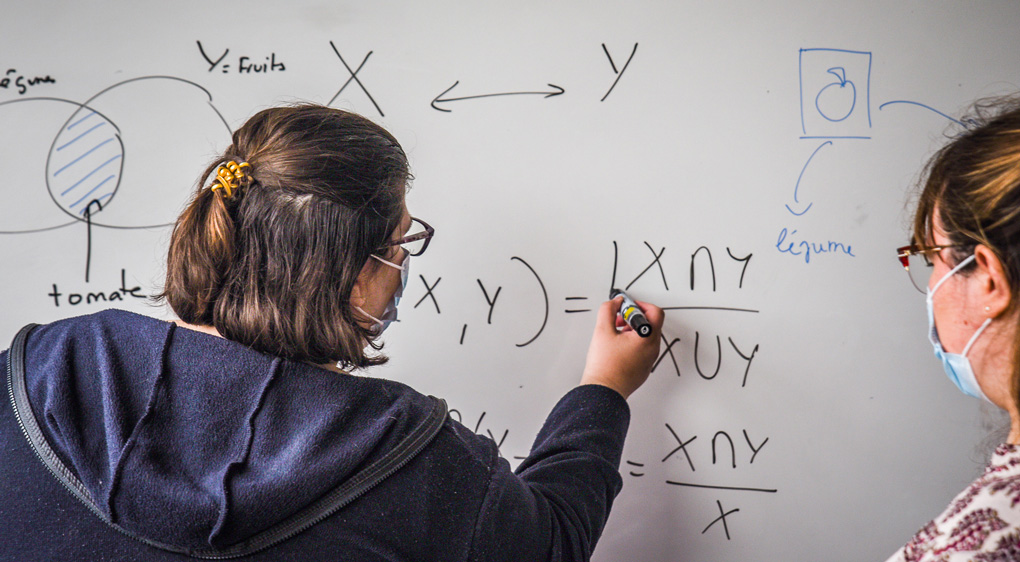 égume
Y = Fruits
X ↔ Y
tomate
légume
X, Y) = |X ∩ Y
X ∪ Y
= X ∩ Y
X